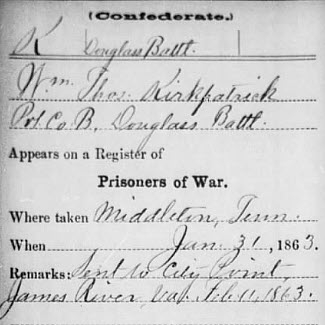 (Confederate.)
K Douglass Batt.
Wm. Thos. Kirkpatrick
Pvt Co. B, Douglass Batt.
Appears on a Register of
Prisoners of War.
Where taken Middleton, Tenn.
When Jan. 31, 1863.
Remarks: Sent to City Point,
James River, Va. Feb 11, 1863.